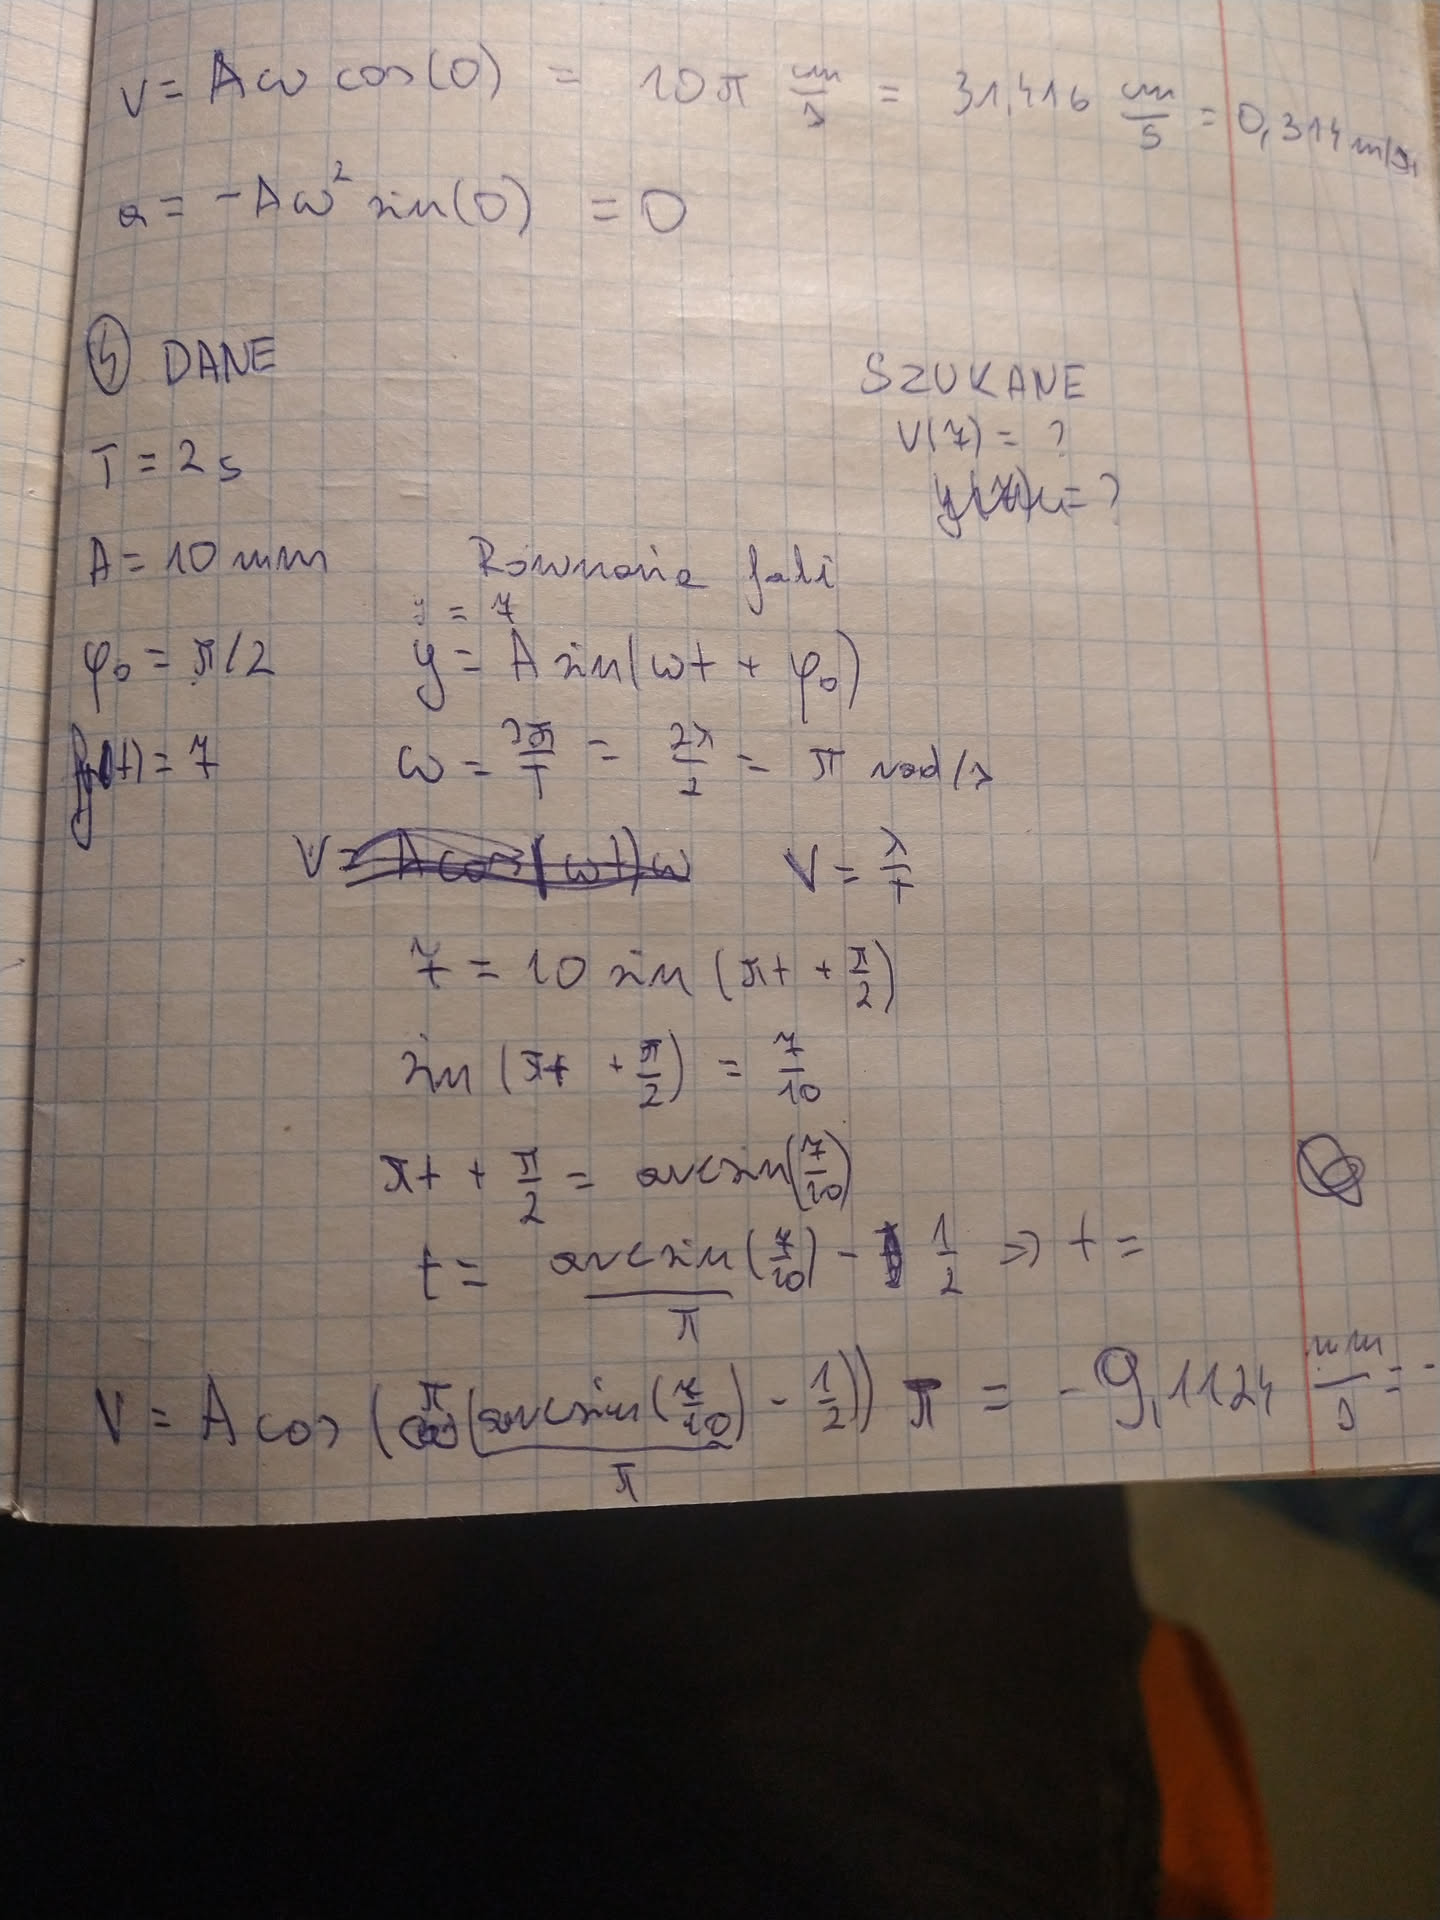 v = Aω cos(0) = 10π cm/s = 31,416 cm/s = 0,314 m/s
a = -Aω² sin(0) = 0
④ DANE
SZUKANE
T = 2s
V(7) = ?
A = 10 mm
Równanie fali
y = 7
φ₀ = π/2
y = A sin(ωt + φ₀)
(t) = 7
ω = 2π/T = 2π/2 = π rad/s
V = A cos(ωt)ω
V = λ/T
7 = 10 sin(πt + π/2)
sin(πt + π/2) = 7/10
πt + π/2 = arcsin(7/10)
t = arcsin(7/10)/π - 1/2 => t =
V = A cos(π(arcsin(7/10)/π - 1/2)) π = -9,1124 mm/s = -